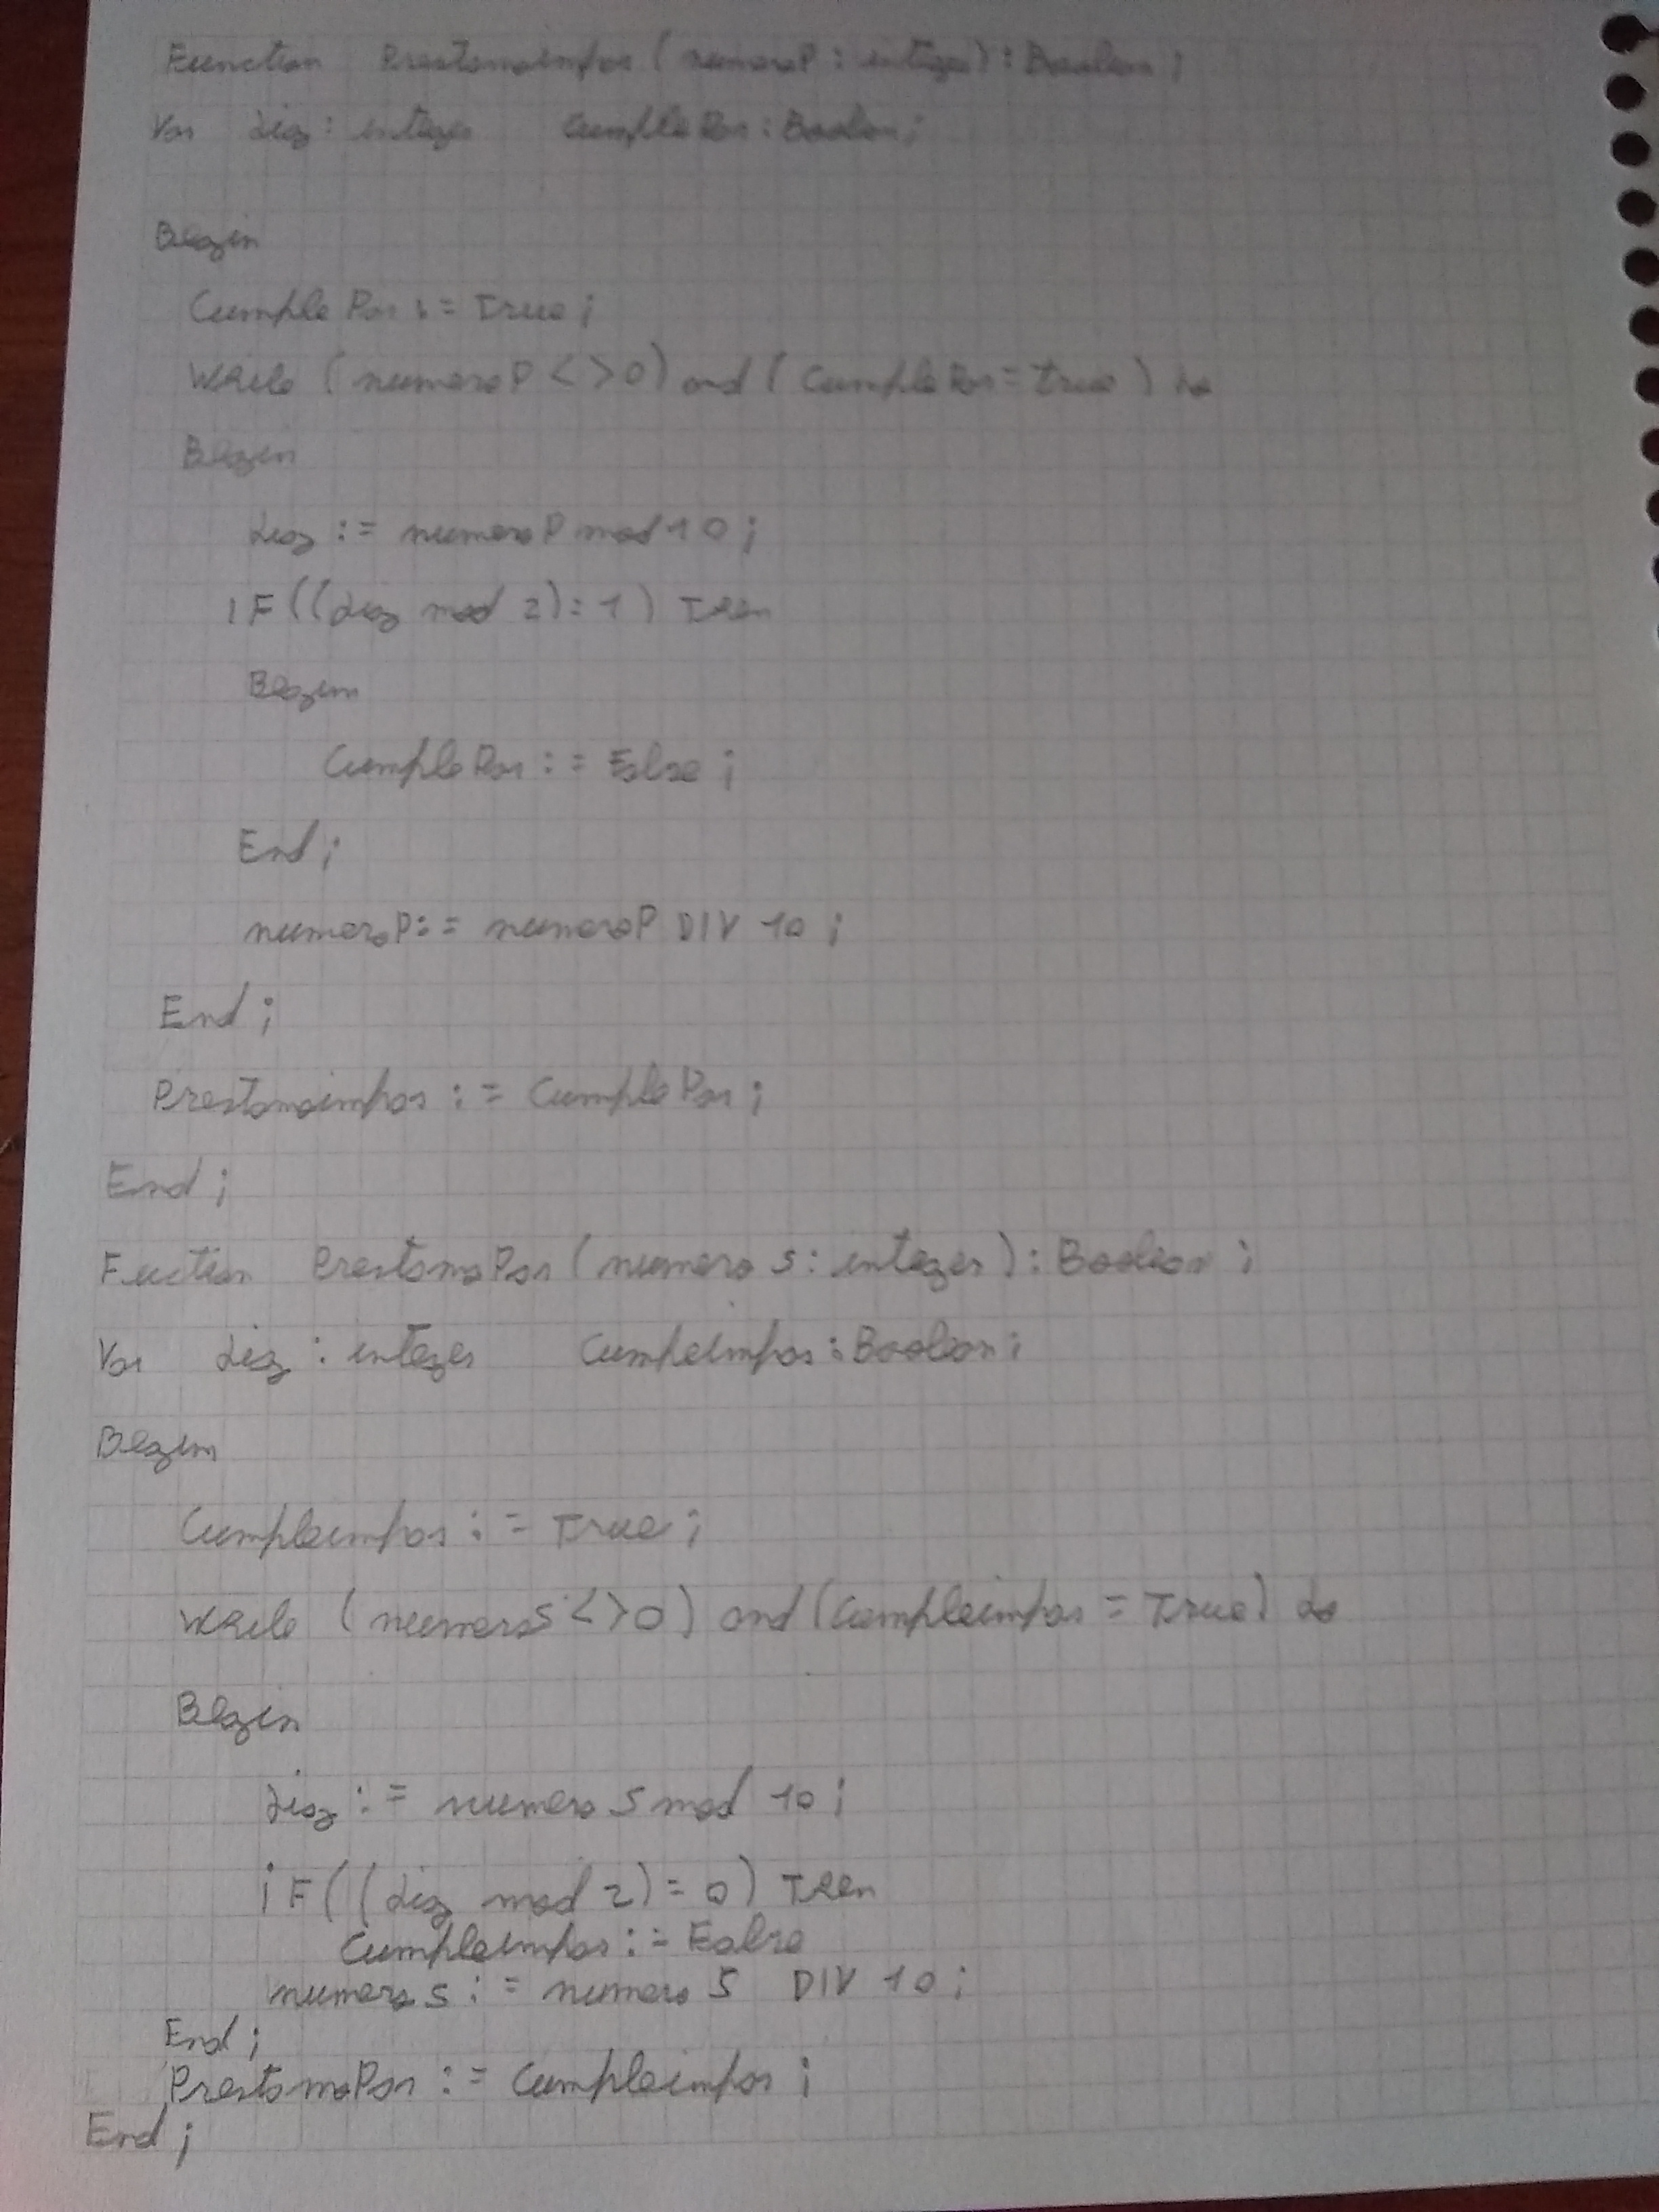 Function Prestamoimpar (numeroP : integer) : Boolean ;
Var dig : integer CumplePar : Boolean ;
Begin
CumplePar := True ;
While (numeroP < > 0) and (CumplePar = true) do
Begin
dig := numeroP mod 10 ;
IF ((dig mod 2) = 1) Then
Begin
CumplePar := False ;
End ;
numeroP := numeroP DIV 10 ;
End ;
Prestamoimpar := CumplePar ;
End ;
Fuction PrestamoPar (numero S : integer) : Boolean ;
Var dig : integer Cumpleimpar : Boolean ;
Begin
Cumpleimpar := True ;
While (numeroS < > 0) and (Cumpleimpar = True) do
Begin
dig := numero S mod 10 ;
iF ((dig mod 2) = 0) Then
Cumpleimpar := False
numero S := numero S DIV 10 ;
End ;
PrestamoPar := Cumpleimpar ;
End ;